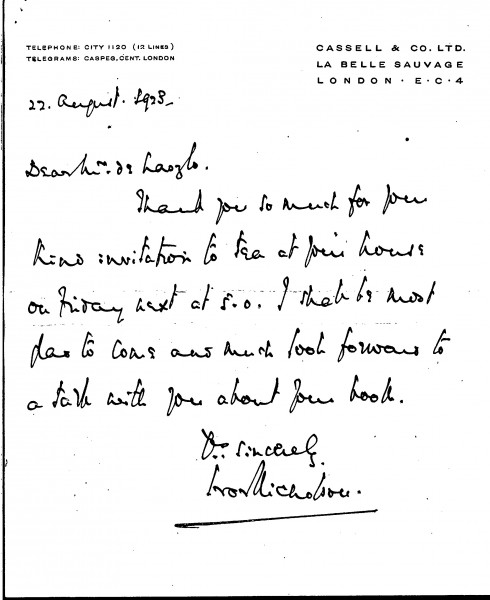 TELEPHONE: CITY 1120 (12 LINES)
TELEGRAMS: CASPEG, CENT. LONDON
CASSELL & CO. LTD.
LA BELLE SAUVAGE
LONDON · E·C·4
22. August. 1923
Dear Mr. de Laszlo.
Thank you so much for your
kind invitation to tea at your house
on Friday next at 5.0. I shall be most
glad to come and much look forward to
a talk with you about your book.
Yrs. sincerely.
Ivor Nicholson.